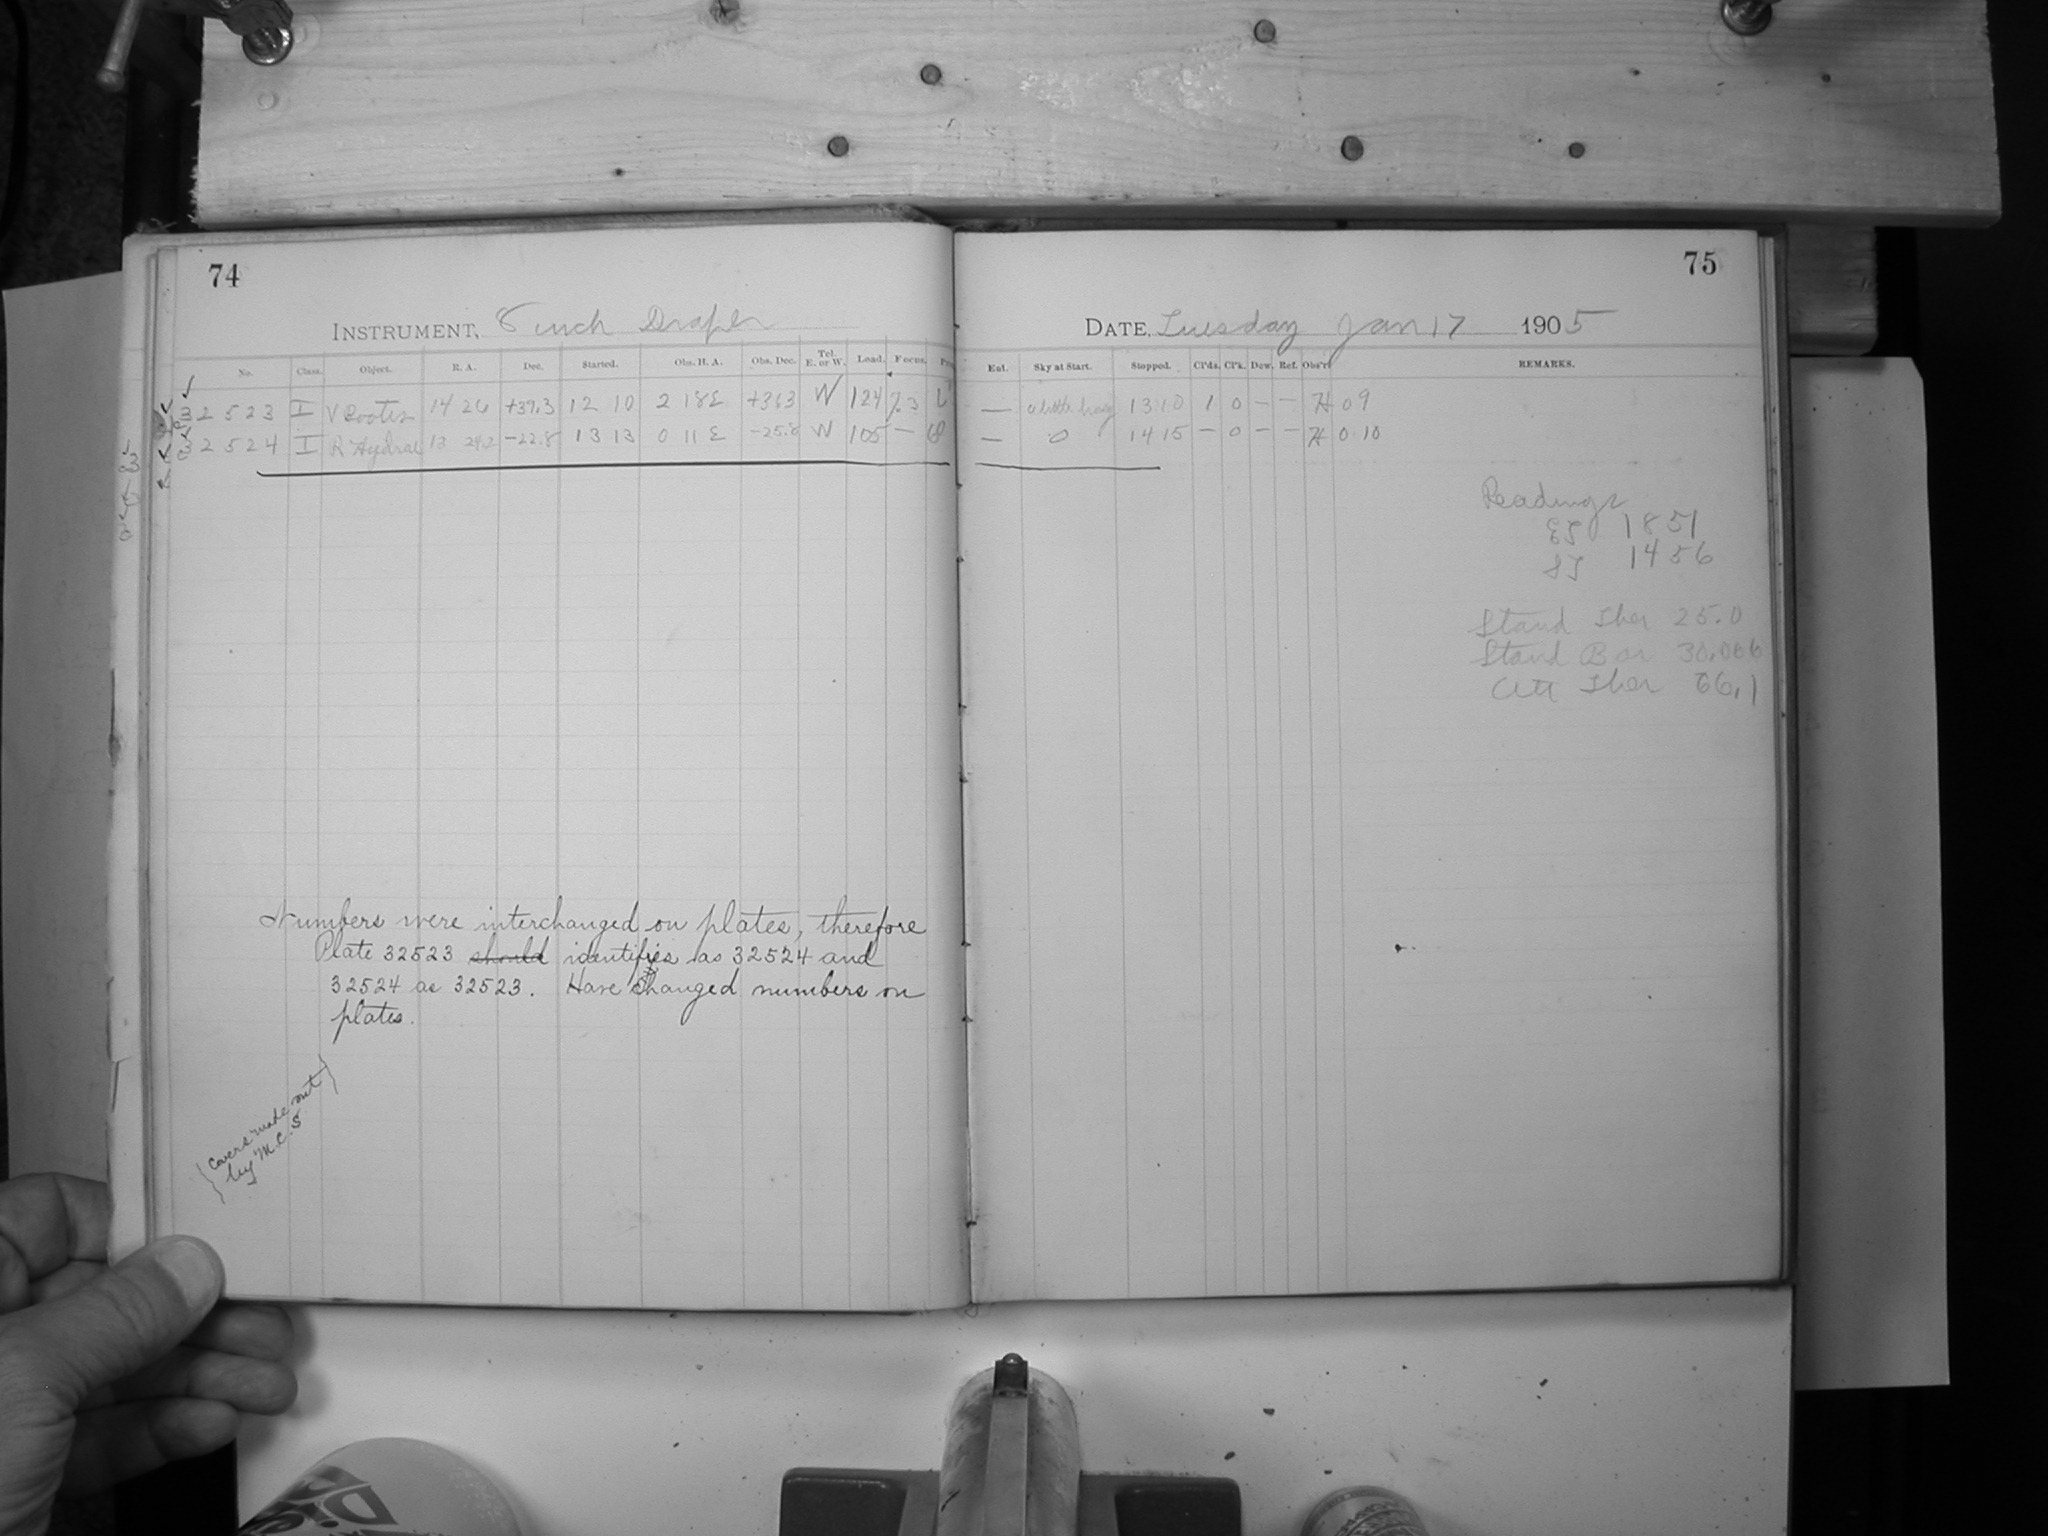 74
INSTRUMENT, 8 inch Draper
No. Class. Object. R. A. Dec. Started. Obs. H. A. Obs. Dec. Tel. E. or W. Load. Focus.
32523 I V Bootis 14 26 +39.3 12 10 2 18E +363 W 124 7.3
32524 I R Hydrae 13 24.2 -22.8 13 13 0 11 E -25.8 W 105 —
Numbers were interchanged on plates, therefore
Plate 32523 should identifies as 32524 and
32524 as 32523. Have changed numbers on
plates.
covers made out
by M.C.S
75
DATE, Tuesday Jan 17 1905
Ent. Sky at Start. Stopped. Cl'ds. Cl'k. Dew. Ref. Obs'r. REMARKS.
— a little hazy 13 10 1 0 - - H 0 9
— 0 14 15 - 0 - - H 0 10
Readings
ES 1851
ST 1456
Stand Ther 25.0
Stand Bar 30.066
Att Ther 66.1